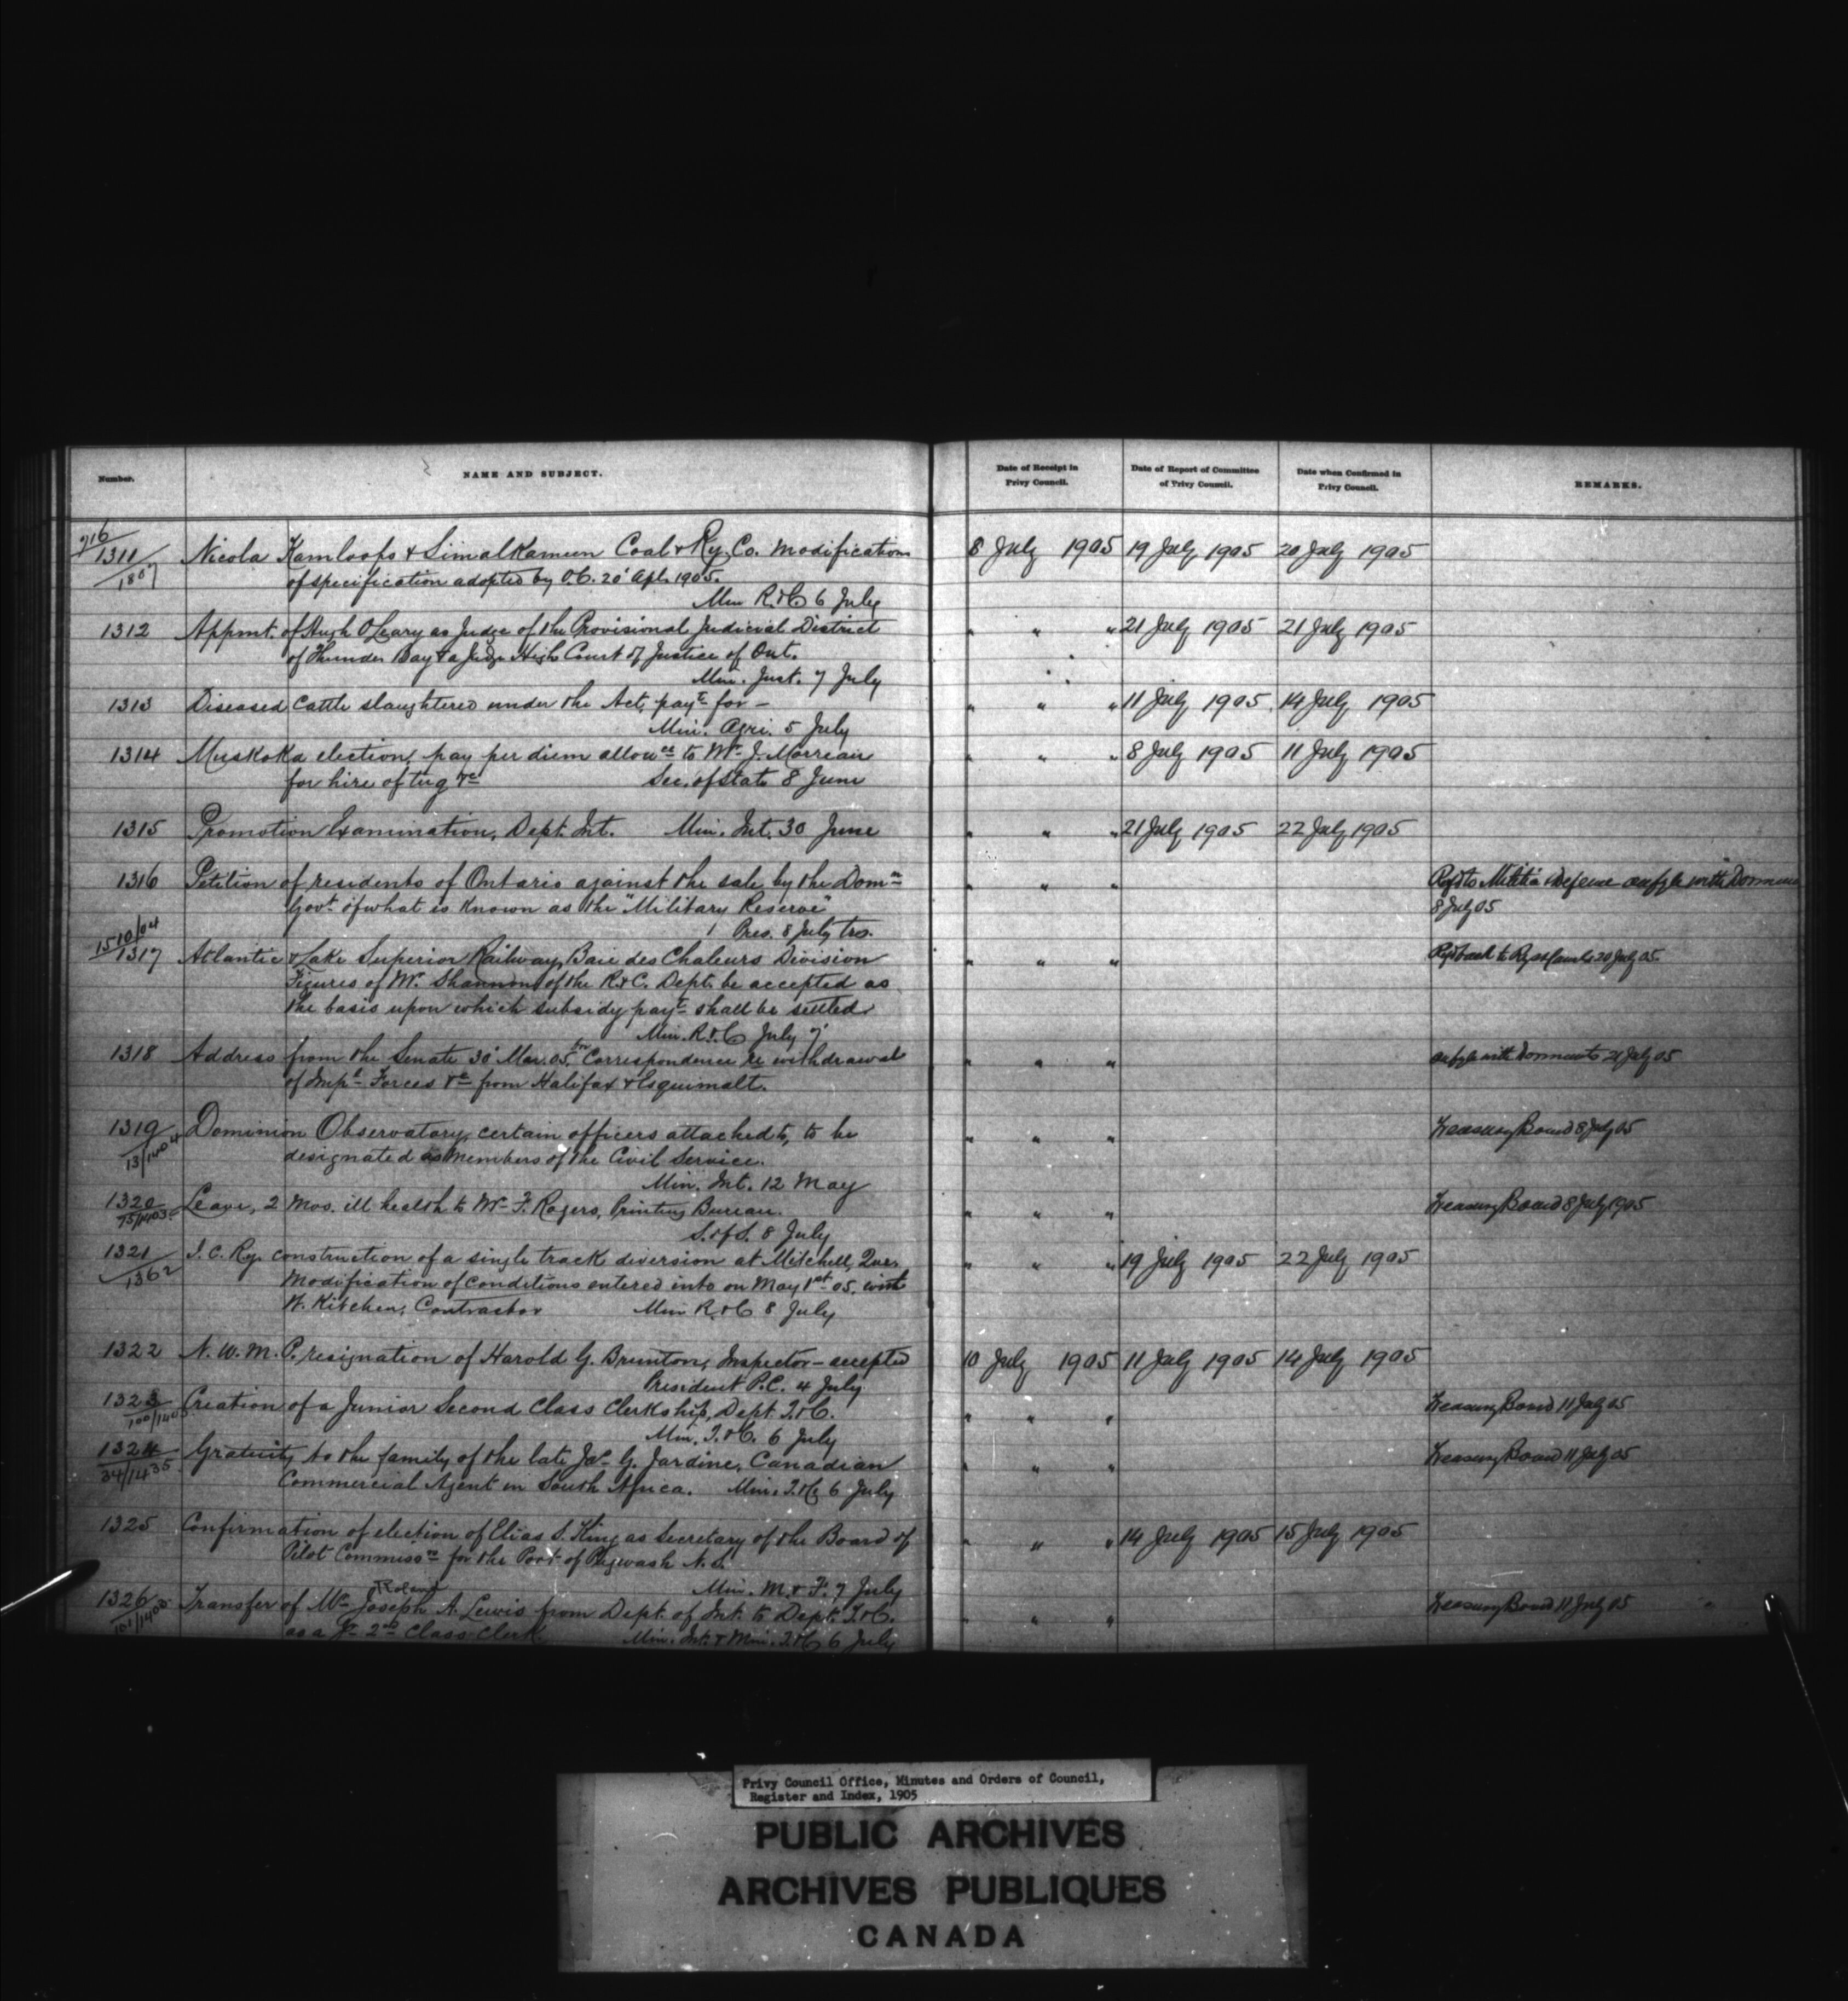 Number. NAME AND SUBJECT. Date of Receipt in Privy Council. Date of Report of Committee of Privy Council. Date when Confirmed in Privy Council. REMARKS.
916
1311 Nicola Kamloops & Similkameen Coal & Ry. Co. Modification 8 July 1905 19 July 1905 20 July 1905
1807 of specification adopted by O.C. 20' Apl. 1905.
Min R. & C. 6 July
1312 Appmt. of Hugh O'Leary as Judge of the Provisional Judicial District " " " 21 July 1905 21 July 1905
of Thunder Bay & a Judge High Court of Justice of Ont.
Min. Just. 7 July
1313 Diseased Cattle slaughtered under the Act, payt for – " " " 11 July 1905 14 July 1905
Min. Agri. 5 July
1314 Muskoka election, pay per diem allowce to Wm J. Morreau " " " 8 July 1905 11 July 1905
for hire of tug &c Sec. of State 8 June
1315 Promotion Examination, Dept. Int. Min. Int. 30 June " " " 21 July 1905 22 July 1905
1316 Petition of residents of Ontario against the sale by the Domn " " " Refd to Militia & Defence with
Govt. of what is known as the "Military Reserve" 8 July 05
1 Pres. 8 July
1510/04
1317 Atlantic & Lake Superior Railway, Baie des Chaleurs Division " " " Refd back to Rys & Canals 20 July 05.
Figures of Mr. Shannon of the R. & C. Dept. be accepted as
the basis upon which subsidy payt shall be settled.
Min. R. & C. July 7'
1318 Address from the Senate 30' Mar. 05, for Correspondence re withdrawal " " " with Dormants 21 July 05
of Impl Forces &c from Halifax & Esquimalt.
1319 Dominion Observatory, certain officers attached to, to be " " " Treasury Board 8 July 05
13/1404 designated as members of the Civil Service.
Min. Int. 12 May
1320 Leave, 2 Mos. ill health to Wm F. Rogers, Printing Bureau. " " " Treasury Board 8 July 1905
75/1403 S. of S. 8 July
1321 I. C. Ry. construction of a single track diversion at Mitchell, Que. " " " 19 July 1905 22 July 1905
1362 Modification of conditions entered into on May 1st 05, with
W. Kitchen, Contractor Min R. & C. 8 July
1322 N. W. M. P. resignation of Harold G. Brunton, Inspector – accepted 10 July 1905 11 July 1905 14 July 1905
President P.C. 4 July
1323 Creation of a Junior Second Class Clerkship, Dept. T. & C. " " " Treasury Board 11 July 05
100/1403 Min. T. & C. 6 July
1324 Gratuity to the family of the late Jas G. Jardine, Canadian " " " Treasury Board 11 July 05
34/1435 Commercial Agent in South Africa. Min. T. & C. 6 July
1325 Confirmation of election of Elias S. King as Secretary of the Board of " " " 14 July 1905 15 July 1905
Pilot Commissrs for the Port of Pugwash N.S.
Min. M. & F. 7 July
Roland
1326 Transfer of Mr. Joseph A. Lewis from Dept. of Int. to Dept. T. & C. " " " Treasury Board 11 July 05
101/1403 as a Jr. 2nd Class Clerk. Min. Int. & Min. T. & C. 6 July
Privy Council Office, Minutes and Orders of Council,
Register and Index, 1905
PUBLIC ARCHIVES
ARCHIVES PUBLIQUES
CANADA